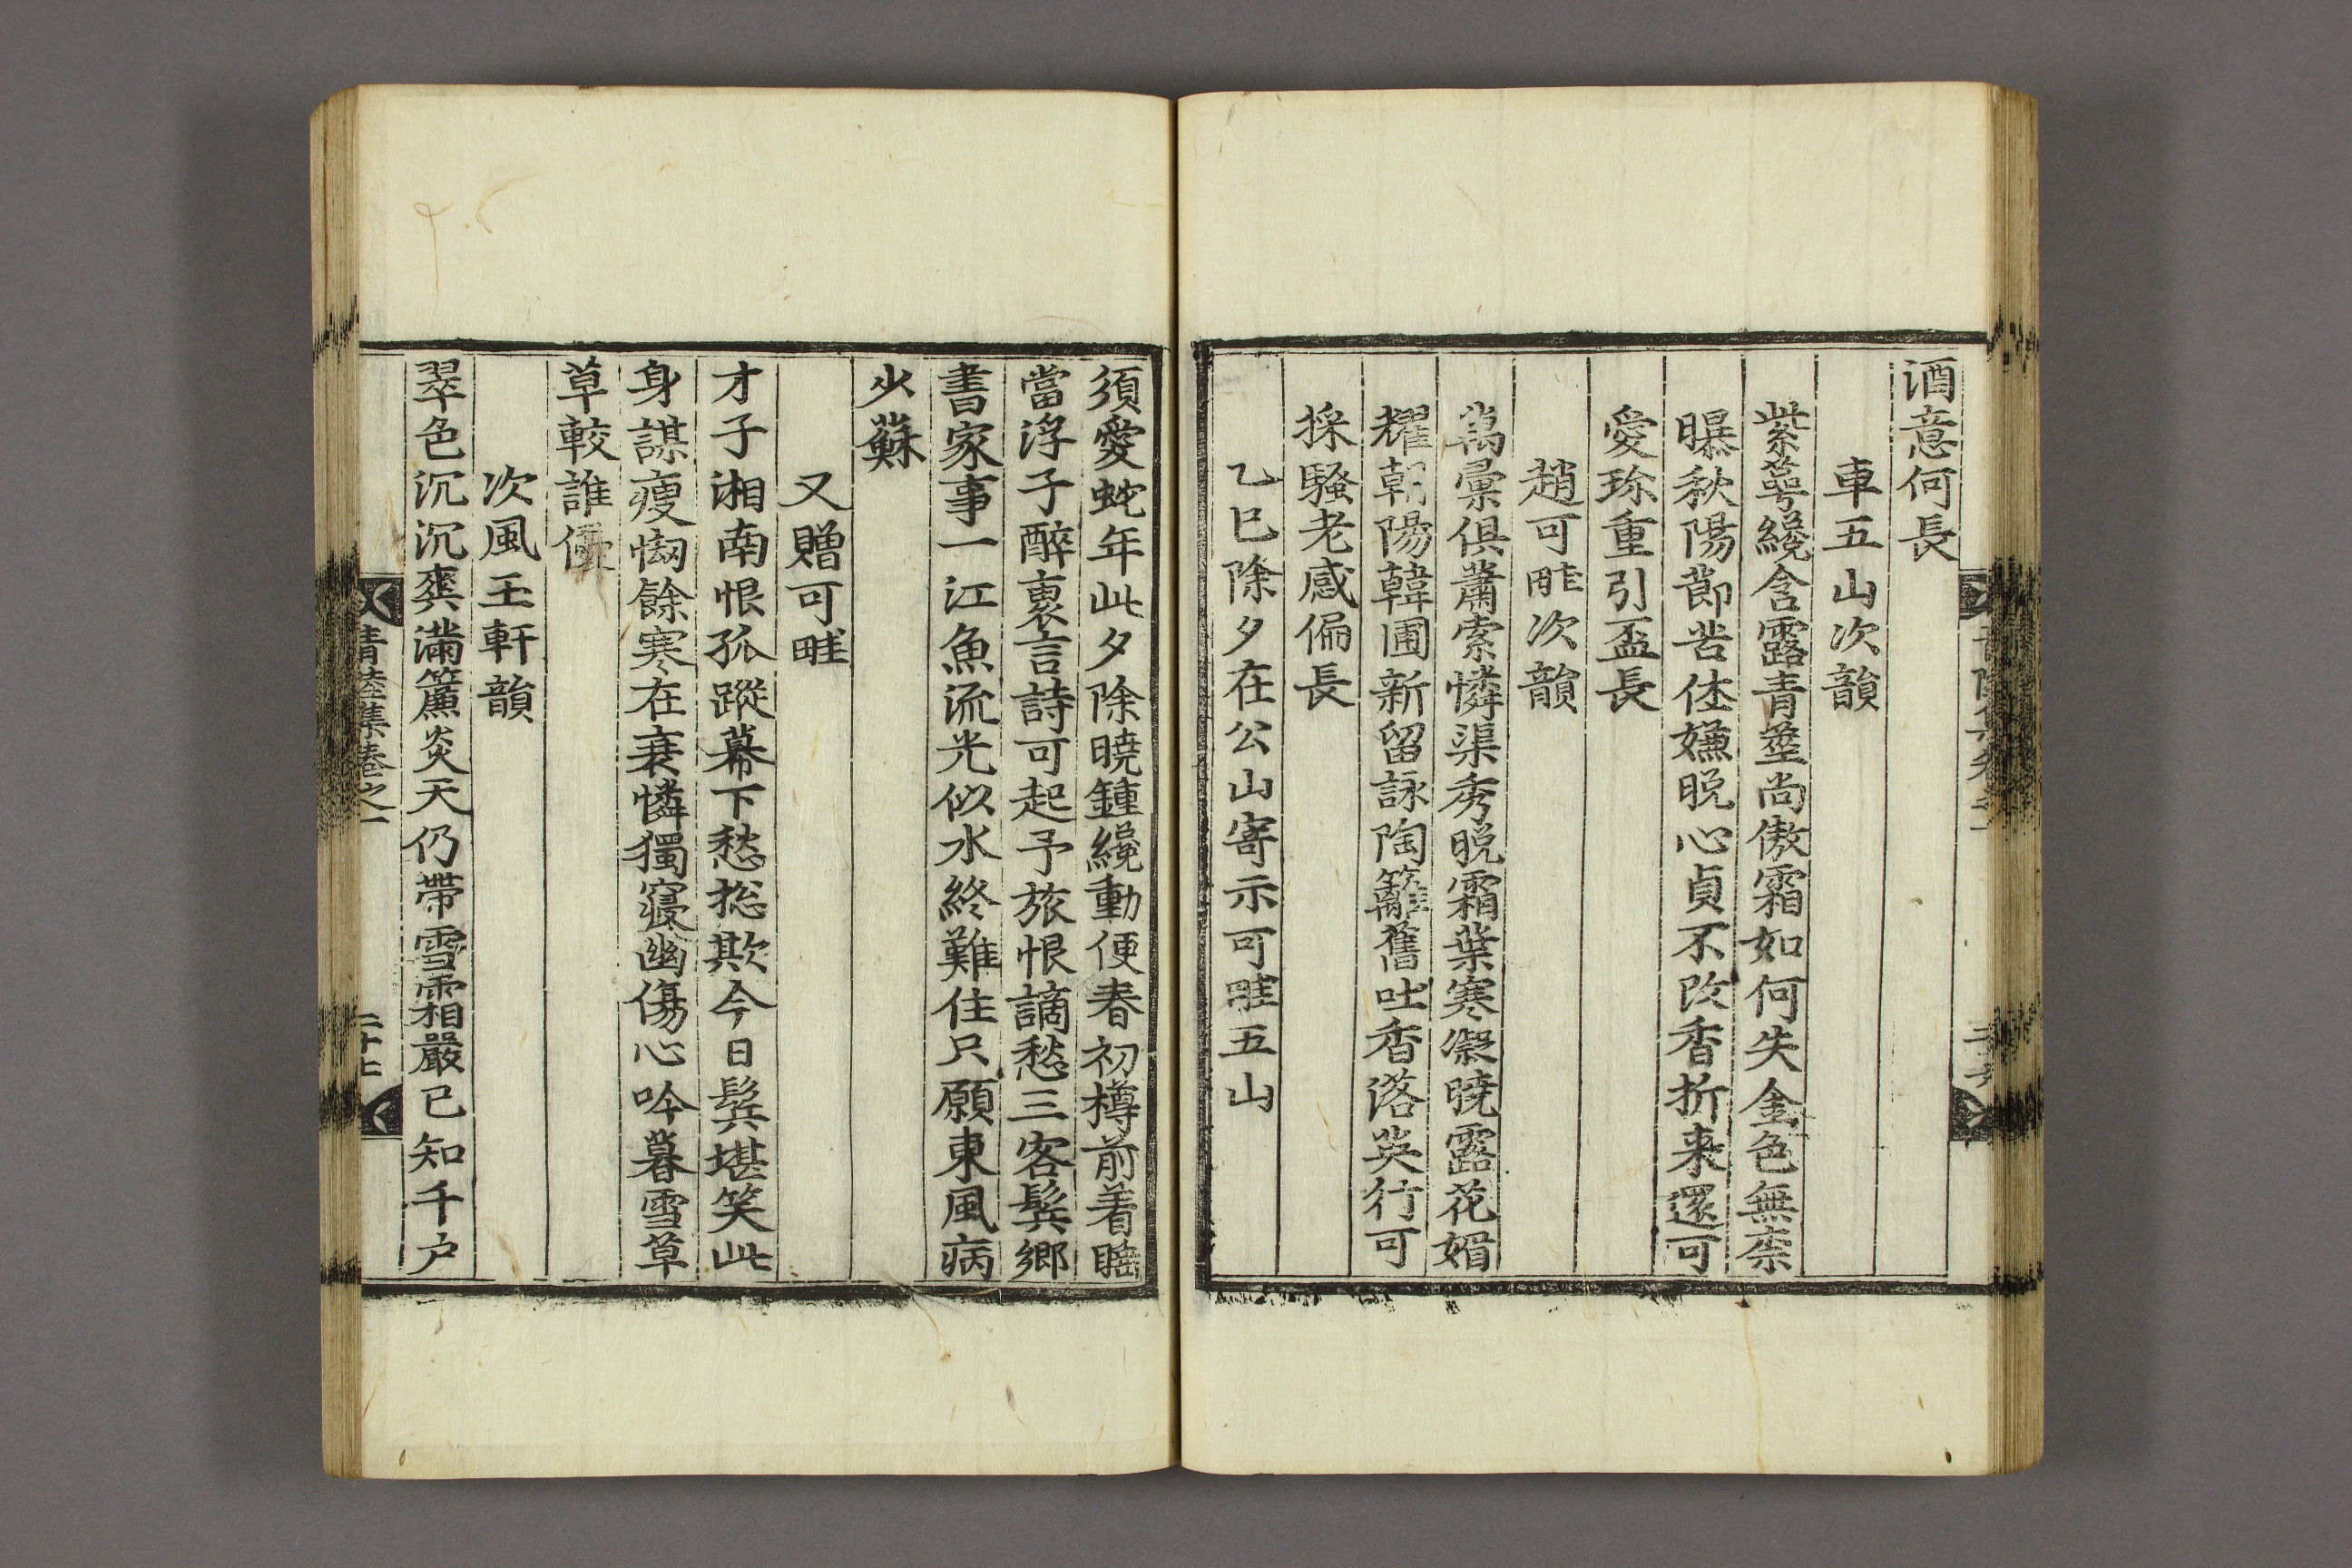 酒意何長
車五山次韻
紫萼纔含露青蘂尚傲霜如何失金色無柰
曝秋陽節苦佳嫌晚心貞不改香折来還可
愛珍重引盃長
趙可畦次韻
萬彙俱蕭索憐渠秀晚霜葉寒凝曉露花媚
耀朝陽韓圃新留詠陶籬舊吐香落英行可
採騷老感偏長
乙巳除夕在公山寄示可畦五山
須愛蛇年此夕除曉鍾纔動便春初樽前着
當浮子醉裏言詩可起予旅恨謫愁三客鬂鄉
書家事一江魚流光似水終難住只願東風病
少蘇
又贈可畦
才子湘南恨孤蹤幕下愁捴欺今日鬂堪笑此
身謀瘦㥘餘寒在衰憐獨寢幽傷心吟暮雪草
草較誰優
次風玉軒韻
翠色沉沉爽滿簾炎天仍帶雪霜嚴已知千户
青陸集卷之一
二十七